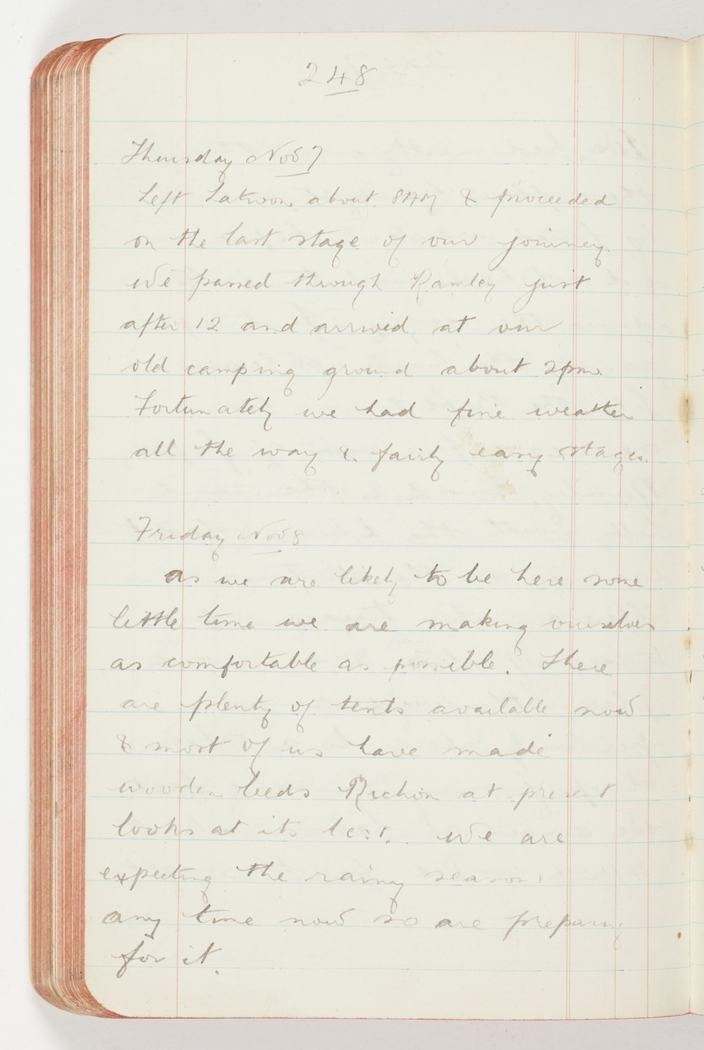 248
Thursday Nov 7
Left Latron about 8AM & proceeded
on the last stage of our journey.
We passed through Ramley just
after 12 and arrived at our
old camping ground about 2pm.
Fortunately we had fine weather
all the way & fairly easy stages.
Friday Nov 8
as we are likely to be here some
little time we are making ourselves
as comfortable as possible. There
are plenty of tents available now
& most of us have made
wooden beds Richon at present
looks at its best. We are
expecting the rainy season
any time now so are preparing
for it.